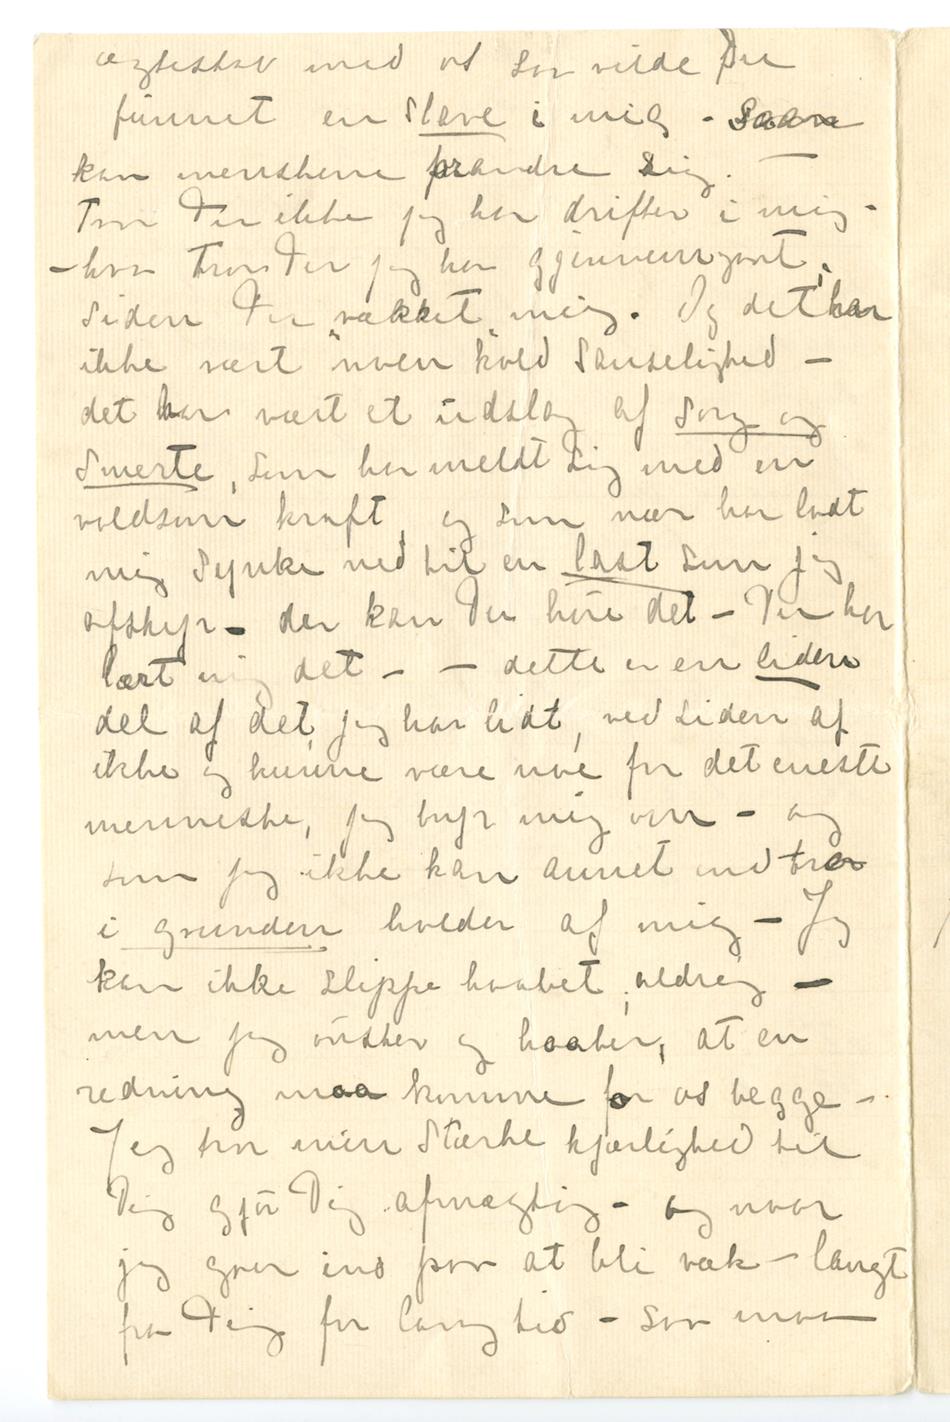 ægteskab med os saa vilde Du
funnet en slave i mig - saan
kan menskene forandre sig. —
Tror Du ikke jeg har drifter i mig -
- hva tror Du jeg har gjennemgaat,
siden Du vækket mig. Og det har
ikke vært "noen kold sanselighed" —
det har vært et udslag af sorg og
smerte, som har meldt sig med en
voldsom kraft, og som nær har ladt
mig synke ned til en last som jeg
afskyr - der kan Du høre det - Du har
lært mig det - - dette er en liden
del af det, jeg har lidt, ved siden af
ikke og kunne være noe for det eneste
menneske, jeg bryr mig om - og
som jeg ikke kan annet end tro
i grunden holder af mig - Jeg
kan ikke slippe haabet, aldrig —
men jeg ønsker og haaber, at en
redning maa komme for os begge -
Jeg tror min stærke kjærlighed til
Dig gjør Dig afmægtig - og naar
jeg gaar ind paa at bli væk - langt
fra Dig for lang tid - saa maa